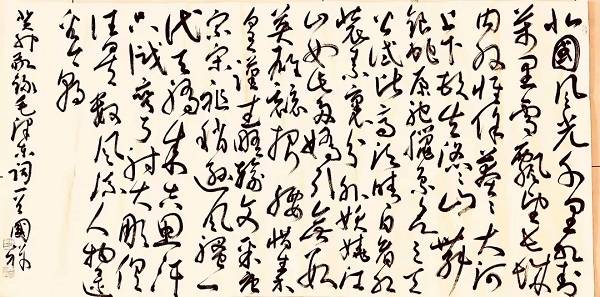 北國风光千里冰封
万里雪飘望长城
内外惟余莽〻大河
上下顿失滔〻山舞
银蛇原驰腊象欲与天
公试比高须晴日看红
装素裹分外妖娆江
山如此多娇引无数
英雄竞折腰惜秦
皇汉武略输文采唐
宗宋祖稍逊风骚一
代天骄成吉思汗
只识弯弓射大雕俱
往矣数风流人物还
看今朝
癸卯敬录毛泽东词一首 國祥